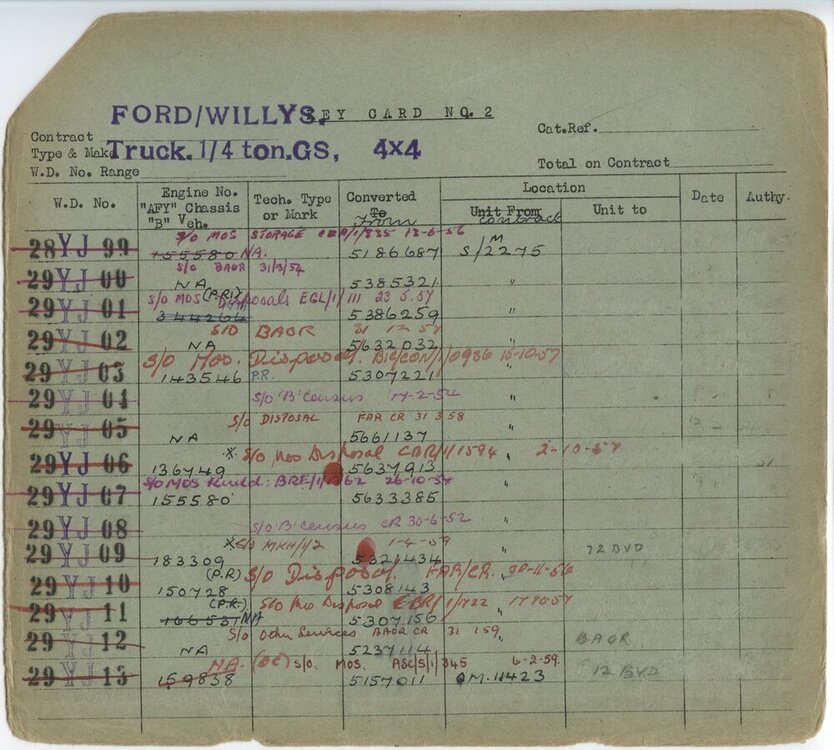 FORD/WILLYS. KEY CARD NO. 2
Contract Cat.Ref.
Type & Make Truck. 1/4 ton. GS, 4x4
W.D. No. Range Total on Contract
W.D. No. Engine No. "AFV" Chassis "B" Veh. Tech. Type or Mark Converted To From Location Unit From contract Unit to Date Authy.
S/O MOS STORAGE 1/835 13-6-56
28 YJ 99 155580 NA. 5186687 S/M 2275
S/O BAOR 31/3/54
29 YJ 00 NA 5385321 "
S/O MOS (P.R.) Disposals EGL/1/111 23.5.57
29 YJ 01 344264 5386259 "
S/O BAOR 31 12 57
29 YJ 02 NA 5632032 "
S/O Mos. Disposal. 15-10-57
29 YJ 03 143546 P.R. 5307221 "
29 YJ 04 S/O 'B' Census 17-2-54 "
S/O DISPOSAL FAR CR 31 3 58
29 YJ 05 NA 5661137 "
* S/O Mos Disposal CBR/1/1594 2-10-57
29 YJ 06 136749 5637913 "
S/O MOS Rudd: 26-10-54
29 YJ 07 155580 5633385 "
29 YJ 08 S/O 'B' Census CR 30-6-52 "
* S/O MKH/1/2 1-4-59
29 YJ 09 183309 5321434 " 72 BVD
(P.R) S/O Disposal. FAR/CR.
29 YJ 10 150728 5308143 "
(P.R.) S/O Disposal 1/1722
29 YJ 11 166531 NA 5307156 "
S/O Other Services BAOR CR 31 1 59
29 YJ 12 NA 5237114 BAOR
NA. (OC) S/O. MOS. ASC/S/1/345 6-2-59.
29 YJ 13 159838 5157011 QM.11423 12 BVD